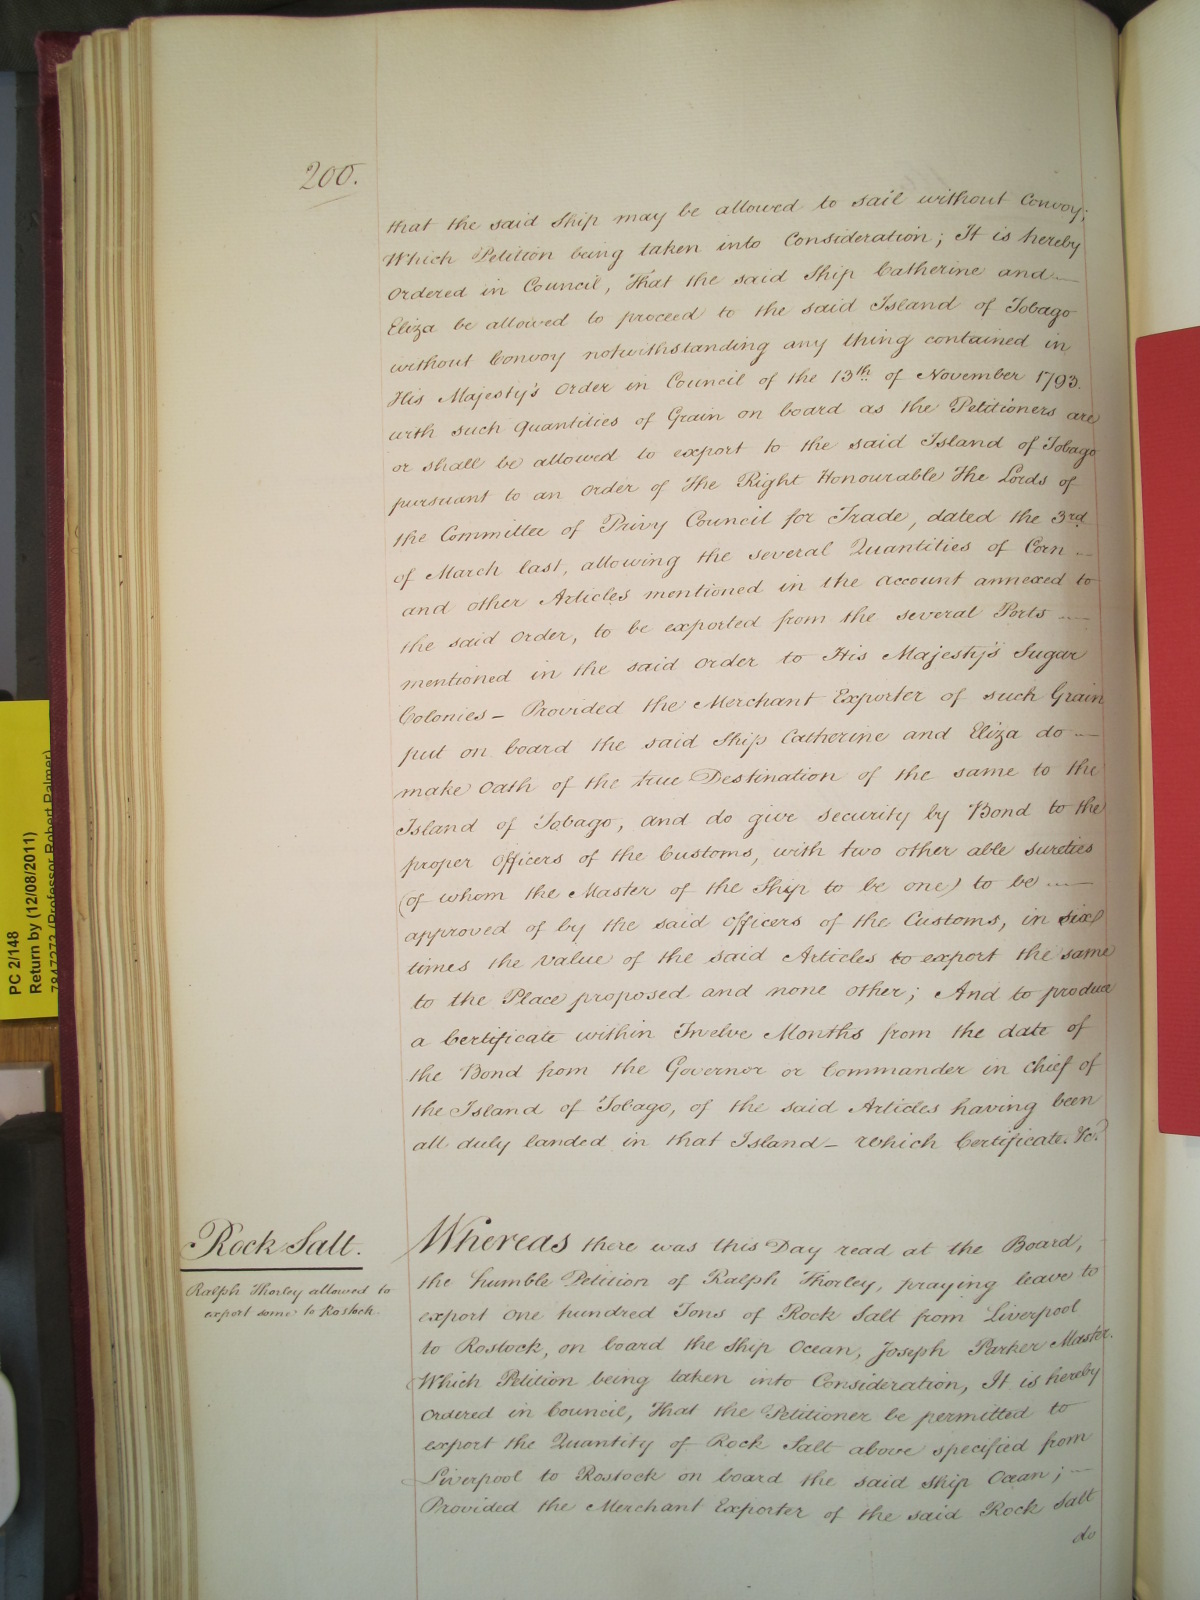 200.
that the said Ship may be allowed to sail without Convoy;
Which Petition being taken into Consideration; It is hereby
Ordered in Council, That the said Ship Catherine and
Eliza be allowed to proceed to the said Island of Tobago
without Convoy notwithstanding any thing contained in
His Majesty's Order in Council of the 13th of November 1793.
with such Quantities of Grain on board as the Petitioners are
or shall be allowed to export to the said Island of Tobago
pursuant to an Order of The Right Honourable The Lords of
the Committee of Privy Council for Trade, dated the 3rd
of March last, allowing the several Quantities of Corn
and other Articles mentioned in the account annexed to
the said Order, to be exported from the several Ports
mentioned in the said Order to His Majesty's Sugar
Colonies – Provided the Merchant Exporter of such Grain
put on board the said Ship Catherine and Eliza do
make Oath of the true Destination of the same to the
Island of Tobago, and do give security by Bond to the
proper Officers of the Customs, with two other able sureties
(of whom the Master of the Ship to be one) to be
approved of by the said Officers of the Customs, in six
times the value of the said Articles to export the same
to the Place proposed and none other; And to produce
a Certificate within Twelve Months from the date of
the Bond from the Governor or Commander in chief of
the Island of Tobago, of the said Articles having been
all duly landed in that Island – which Certificate. &c.
Rock Salt.
Ralph Thorley allowed to
export some to Rostock.
Whereas there was this Day read at the Board,
the humble Petition of Ralph Thorley, praying leave to
export One hundred Tons of Rock Salt from Liverpool
to Rostock, on board the Ship Ocean, Joseph Parker Master.
Which Petition being taken into Consideration, It is hereby
Ordered in Council, That the Petitioner be permitted to
export the Quantity of Rock Salt above specified from
Liverpool to Rostock on board the said Ship Ocean;
Provided the Merchant Exporter of the said Rock Salt
do
PC 2/148
Return by (12/08/2011)
7847273 (Professor Robert Palmer)